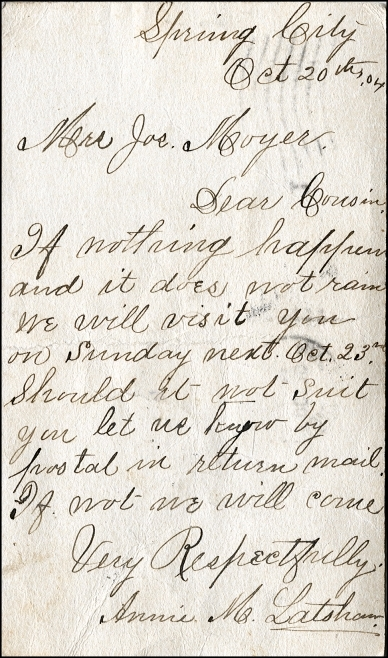 Spring City
Oct 20ths, 04
Mrs Joe. Moyer.
Dear Cousin
If nothing happen
and it does not rain
we will visit you
on Sunday next. Oct. 23rd.
Should it not suit
you let us know by
postal in return mail.
If not we will come
Very Respectfully.
Annie M. Latshaw